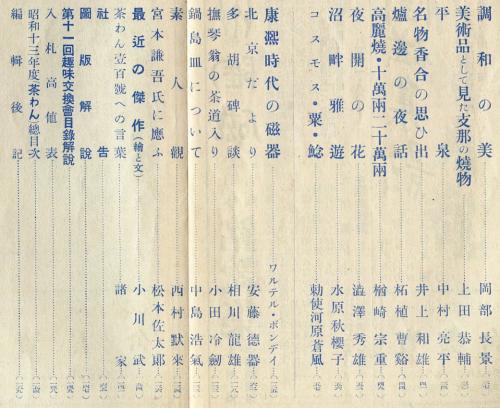 調和の美 岡部長景
美術品として見た支那の燒物 上田恭輔
平泉 中村亮平
名物香合の思ひ出 井上和雄
爐邊の夜話 柘植曹谿
高麗燒・十萬兩二十萬兩 楢崎宗重
夜開の花 澁澤秀雄
沼畔雅遊 水原秋櫻子
コスモス・粟・鯰 勅使河原蒼風
康熙時代の磁器 ワルテル・ボンデイ
北京だより 安藤德器
多胡碑談 相川龍雄
撫琴翁の茶道入り 小田冷劍
鍋島皿について 中島浩氣
素人觀 西村默來
宮本謙吾氏に應ふ 松本佐太郎
最近の傑作(繪と文) 小川武
茶わん壹百號への言葉 諸家
社告
圖版解說
第十一回趣味交換會目錄解說
入札高値表
昭和十三年度茶わん總目次
編輯後記